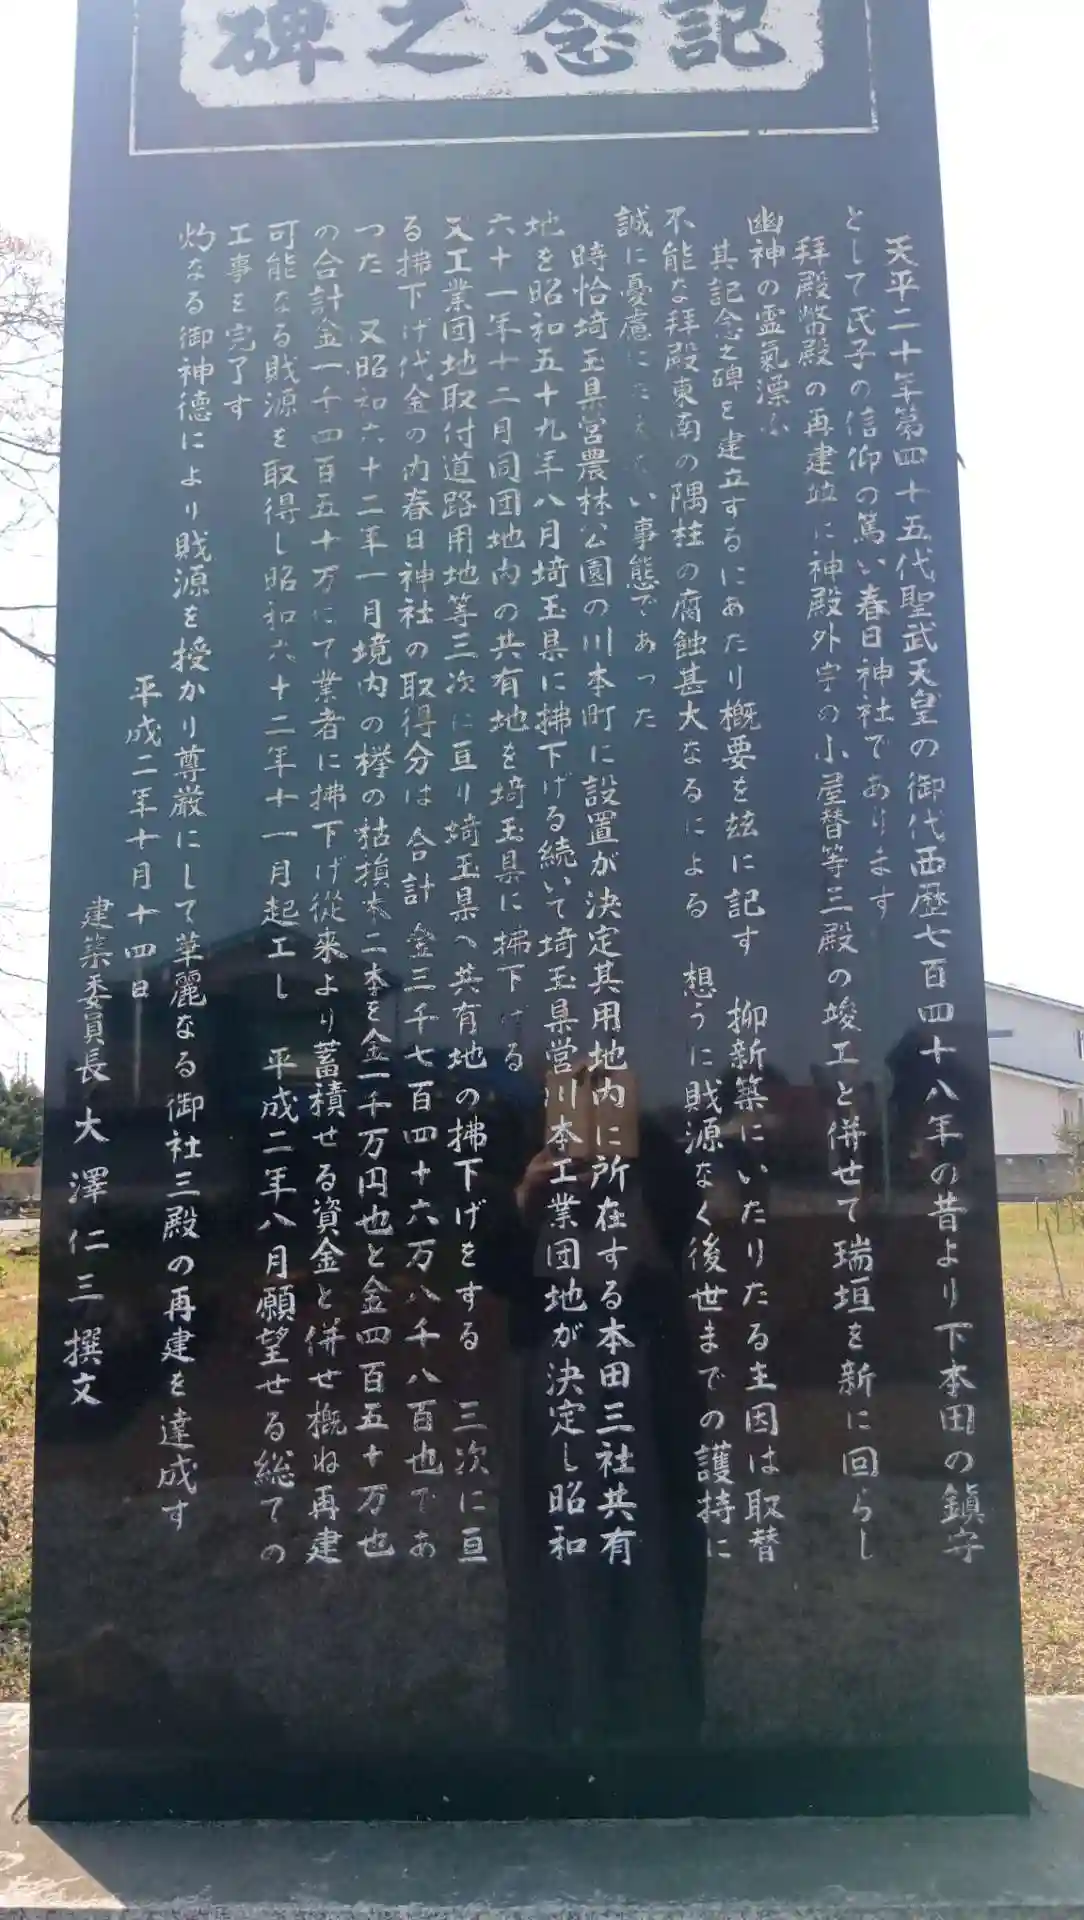 記念之碑
天平二十年第四十五代聖武天皇の御代西歴七百四十八年の昔より下本田の鎮守
として氏子の信仰の篤い春日神社であります
拝殿幣殿の再建竝に神殿外宇の小屋替等三殿の竣工と併せて瑞垣を新に回らし
幽神の霊氣漂ふ
其記念之碑を建立するにあたり概要を玆に記す 抑新築にいたりたる主因は取替
不能な拝殿東南の隅柱の腐蝕甚大なるによる 想うに賎源なく後世までの護持に
誠に憂慮にたえない事態であった
時恰埼玉県営農林公園の川本町に設置が決定其用地内に所在する本田三社共有
地を昭和五十九年八月埼玉県に拂下げる続いて埼玉県営川本工業団地が決定し昭和
六十一年十二月同団地内の共有地を埼玉県に拂下げる
又工業団地取付道路用地等三次に亘り埼玉県へ共有地の拂下げをする 三次に亘
る拂下げ代金の内春日神社の取得分は合計金三千七百四十六万八千八百也であ
つた 又昭和六十二年一月境内の欅の枯損木二本を金一千万円也と金四百五十万也
の合計金一千四百五十万にて業者に拂下げ従来より蓄積せる資金と併せ概ね再建
可能なる賎源を取得し昭和六十二年十一月起工し 平成二年八月願望せる総ての
工事を完了す
灼なる御神徳により賎源を授かり尊厳にして華麗なる御社三殿の再建を達成す
平成二年十月十四日
建築委員長 大澤仁三撰文